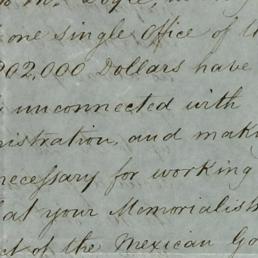 Mr. Doyle,
one single Office of
902,000 Dollars have
unconnected with
istration, and maki
necessary for working
at your Memorialist
ct of the Mexican Go